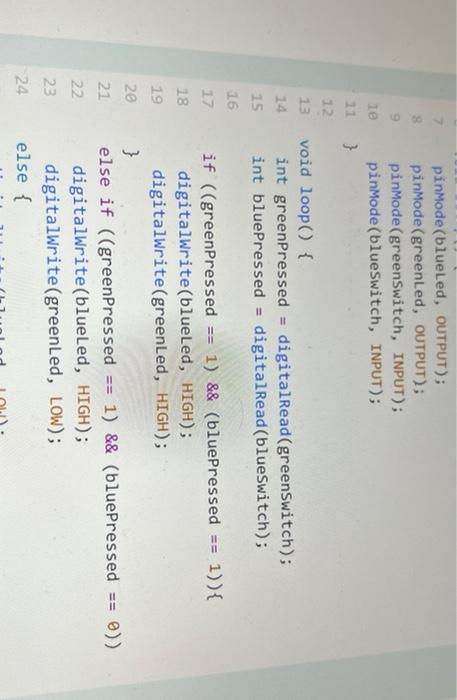 7 pinMode(blueLed, OUTPUT);
8 pinMode(greenLed, OUTPUT);
9 pinMode(greenSwitch, INPUT);
10 pinMode(blueSwitch, INPUT);
11 }
12
13 void loop() {
14 int greenPressed = digitalRead(greenSwitch);
15 int bluePressed = digitalRead(blueSwitch);
16
17 if ((greenPressed == 1) && (bluePressed == 1)){
18 digitalWrite(blueLed, HIGH);
19 digitalWrite(greenLed, HIGH);
20 }
21 else if ((greenPressed == 1) && (bluePressed == 0))
22 digitalWrite(blueLed, HIGH);
23 digitalWrite(greenLed, LOW);
24 else {